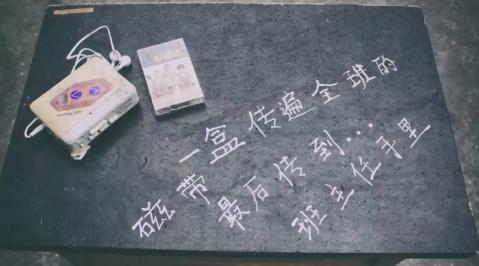 一盒传遍全班的
磁带最后传到...
班主任手里